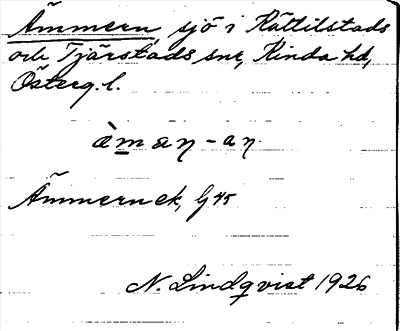 Ämmern, sjö i Kättilstads
och Tjärstads snr, Kinda hd,
Österg. l.
àmaŋ -aŋ
Ämmern ek, G 45
N. Lindqvist 1926